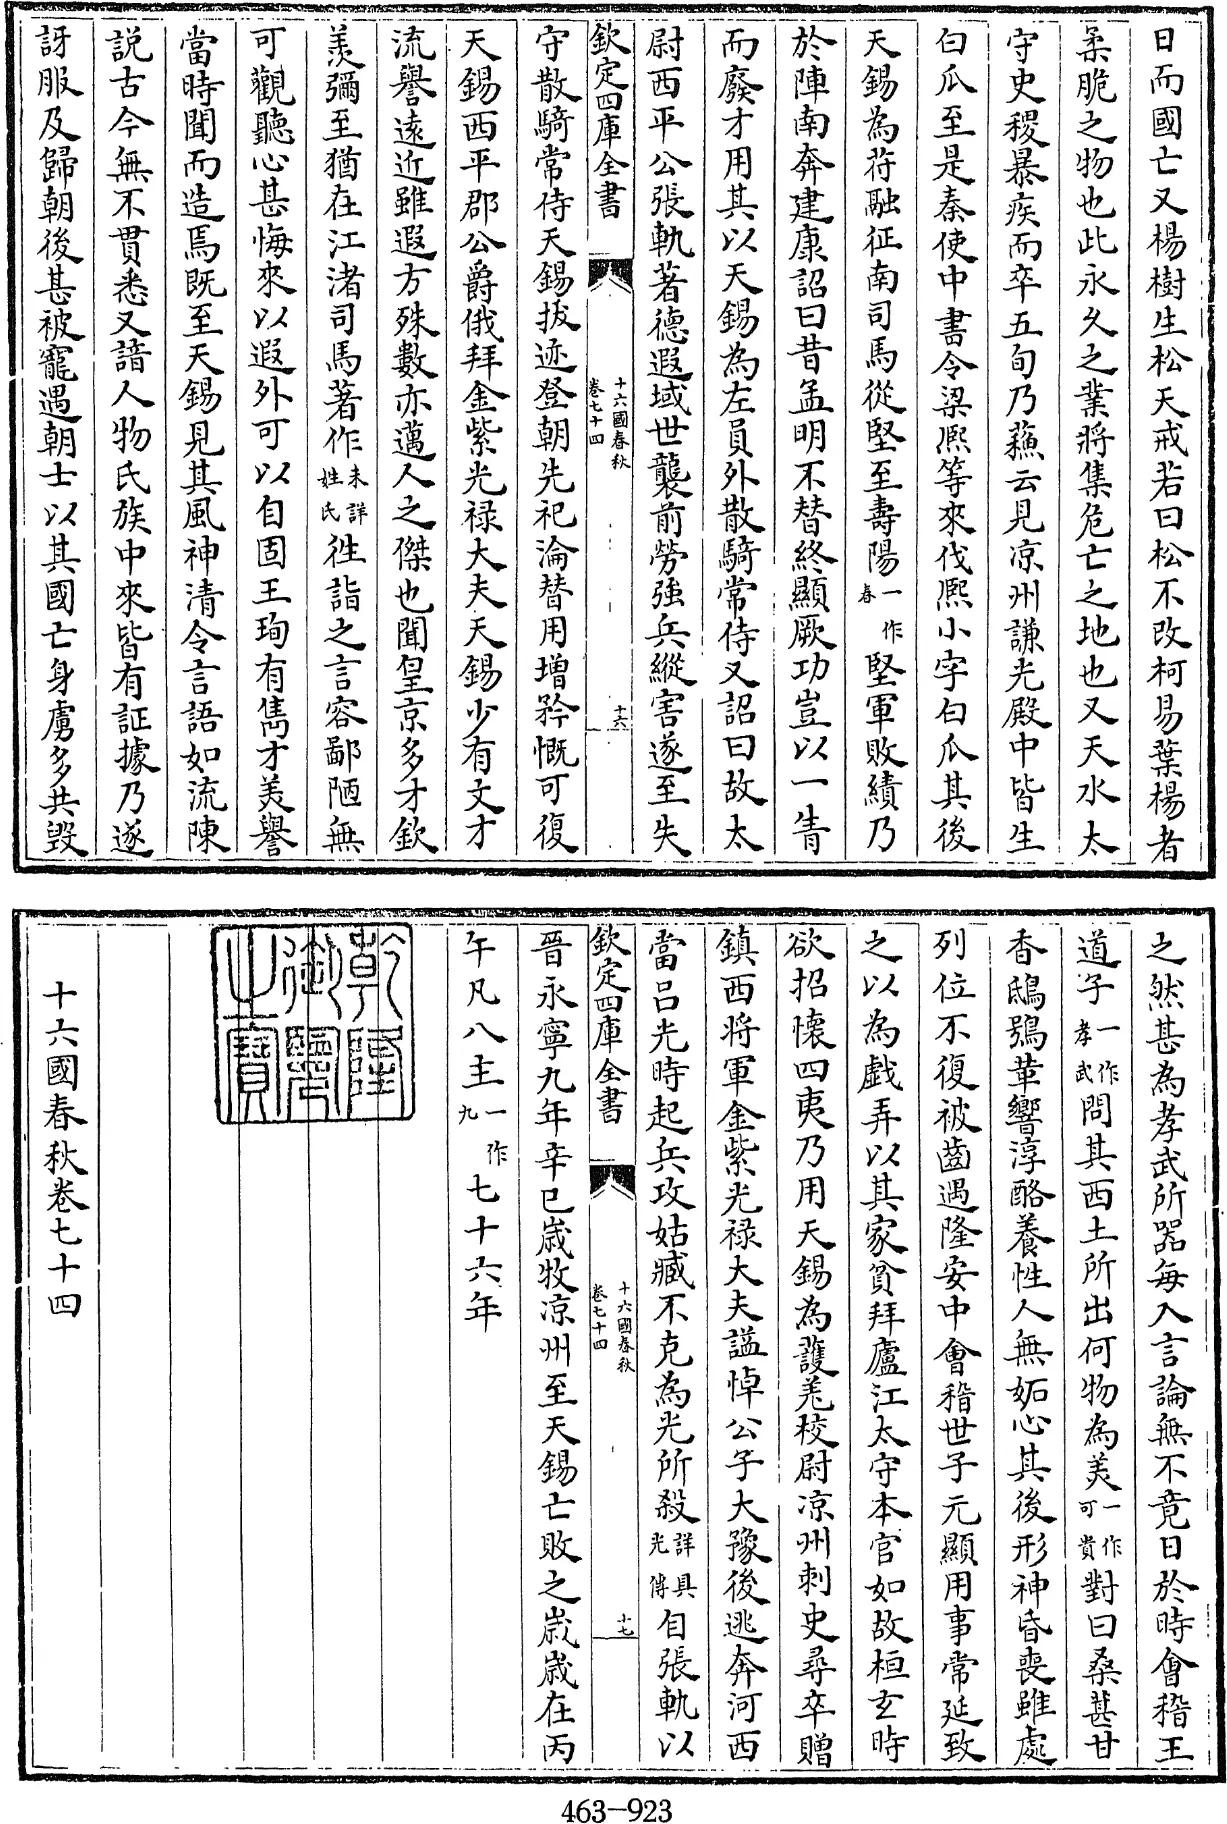 日而國亡又楊樹生松天戒若曰松不改柯易葉楊者
柔脆之物也此永久之業將集危亡之地也又天水太
守史稷暴疾而卒五旬乃蘇云見涼州謙光殿中皆生
白瓜至是秦使中書令梁熈等來伐熈小字白瓜其後
天錫為苻融征南司馬從堅至壽陽一作春堅軍敗績乃
於陣南奔建康詔曰昔孟明不替終顯厥功豈以一眚
而廢才用其以天錫為左員外散騎常侍又詔曰故太
尉西平公張軌著德遐域世襲前勞強兵縱害遂至失
欽定四庫全書
十六國春秋
卷七十四
十六
守散騎常侍天錫拔迹登朝先祀淪替用增矜慨可復
天錫西平郡公爵俄拜金紫光禄大夫天錫少有文才
流譽遠近雖遐方殊數亦邁人之傑也聞皇京多才欽
羡彌至猶在江渚司馬著作未詳姓氏徃詣之言容鄙陋無
可觀聽心甚悔來以遐外可以自固王珣有雋才美譽
當時聞而造焉既至天錫見其風神清令言語如流陳
説古今無不貫悉又諳人物氏族中來皆有証據乃遂
訝服及歸朝後甚被寵遇朝士以其國亡身虜多共毀
之然甚為孝武所器每入言論無不竟日於時會稽王
道子一作孝武問其西土所出何物為美一作可貴對曰桑甚甘
香鴟鴞革響淳酪養性人無妬心其後形神昏喪雖處
列位不復被齒遇隆安中會稽世子元顯用事常延致
之以為戲弄以其家貧拜廬江太守本官如故桓玄時
欲招懷四夷乃用天錫為護羌校尉凉州刺史尋卒贈
鎮西將軍金紫光禄大夫謚悼公子大豫後逃奔河西
當吕光時起兵攻姑臧不克為光所殺詳具光傳自張軌以
欽定四庫全書
十六國春秋
卷七十四
十七
晉永寧九年辛巳歳牧凉州至天錫亡敗之歳歳在丙
午凡八主一作九七十六年
乾隆御覽之寶
十六國春秋卷七十四
463-923